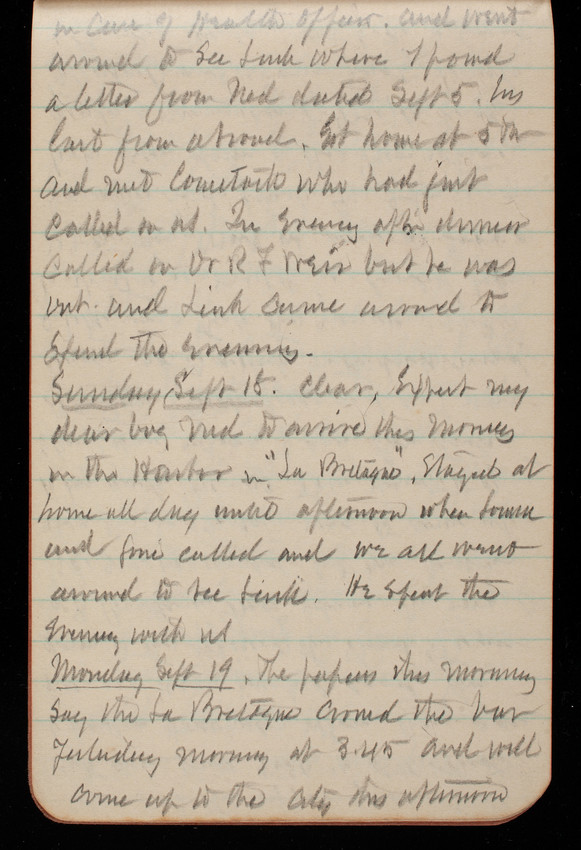 in care of Health Officer. and went
around to see Link where I found
a letter from Ned dated Sept 5. his
last from abroad. Got home at 5 PM
and met Comstock who had just
called on us. In evening after dinner
called on Dr R F Weir but he was
out. and Link came around to
spend the evening.
Sunday Sept 18. Clear, Expect my
dear boy Ned to arrive this morning
in the Harbor in "La Bretagne". Stayed at
home all day until afternoon when
and called and we all went
around to see Link. He spent the
evening with us
Monday Sept 19. The papers this morning
say the La Bretagne crossed the bar
yesterday morning at 3.45 and will
come up to the city this afternoon